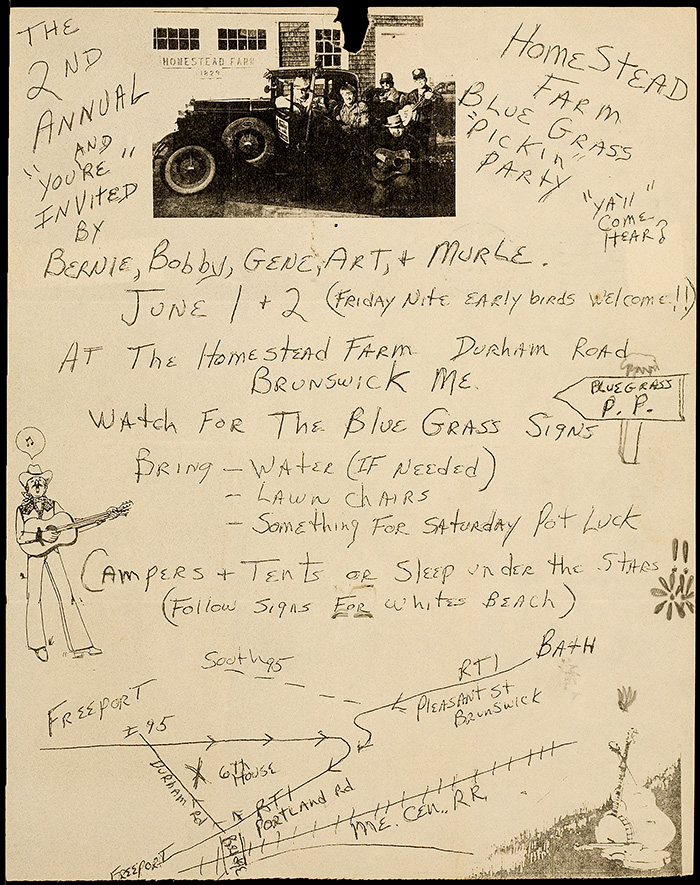 THE
2ND
ANNUAL
AND
"YOU'RE"
INVITED
BY
HOMESTEAD FARM
1829
HOMESTEAD
FARM
BLUE GRASS
"PICKIN"
PARTY
"YA'll"
COME
HEAR?
BERNIE, BOBBY, GENE, ART, + MURLE.
JUNE 1 + 2 (FRIDAY NITE EARLY BIRDS WELCOME!!)
AT THE HOMESTEAD FARM DURHAM ROAD
BRUNSWICK ME.
WATCH FOR THE BLUE GRASS SIGNS
BLUEGRASS
P. P.
BRING - WATER (IF NEEDED)
- LAWN CHAIRS
- SOMETHING FOR SATURDAY POT LUCK
CAMPERS + TENTS OR SLEEP UNDER THE STARS!!
(FOLLOW SIGNS FOR WHITES BEACH)
South 95
RT1
BATH
PLEASANT St
BRUNSWICK
FREEPORT
I 95
X 6th
HOUSE
DURHAM Rd
RT1
PORTLAND Rd
ME. CEN. RR.
FREEPORT
BRIDGE